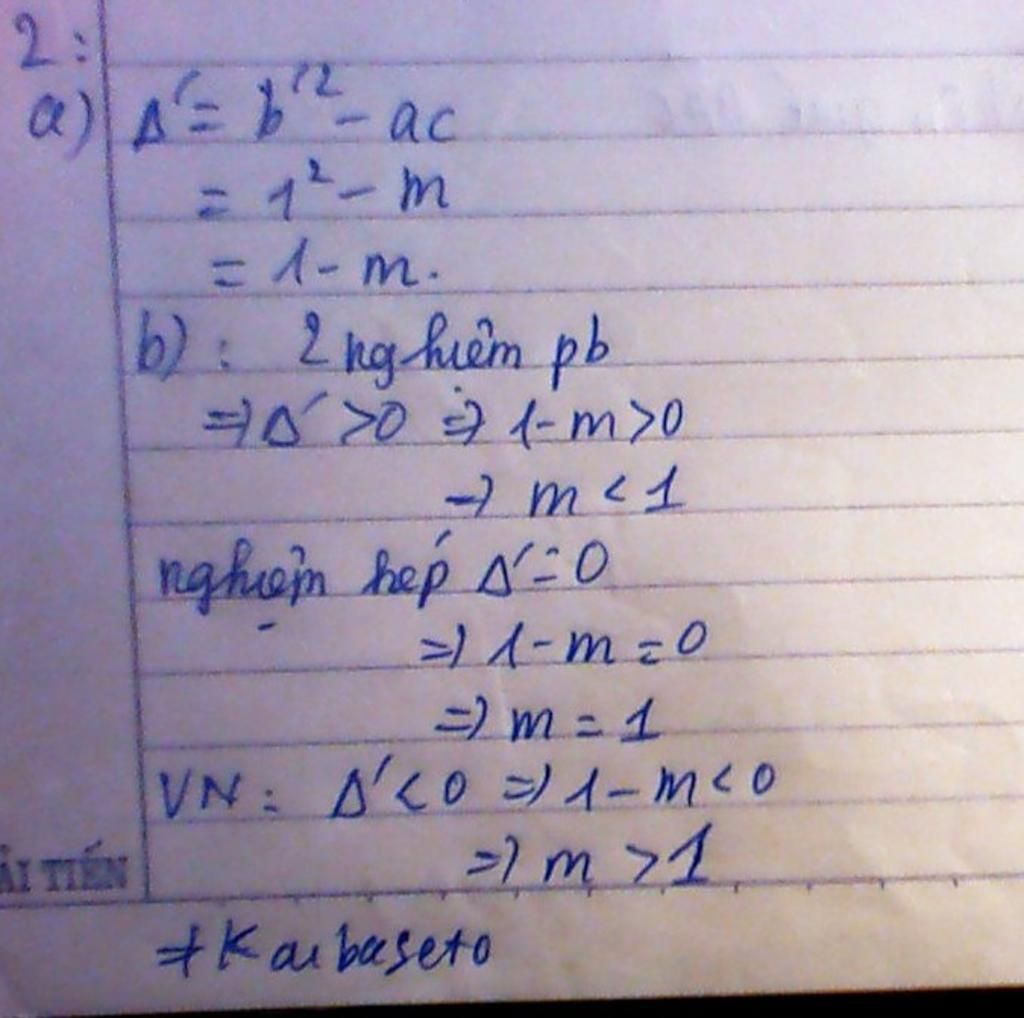 2:
a) Δ' = b'² - ac
= 1² - m
= 1 - m.
b) : 2 nghiệm pb
=> Δ' >0 => 1-m>0
-> m < 1
nghiệm kép Δ' = 0
=> 1-m = 0
=> m = 1
VN : Δ' < 0 => 1-m < 0
=> m > 1
ẢI TIẾN
≠ Kaibaseto